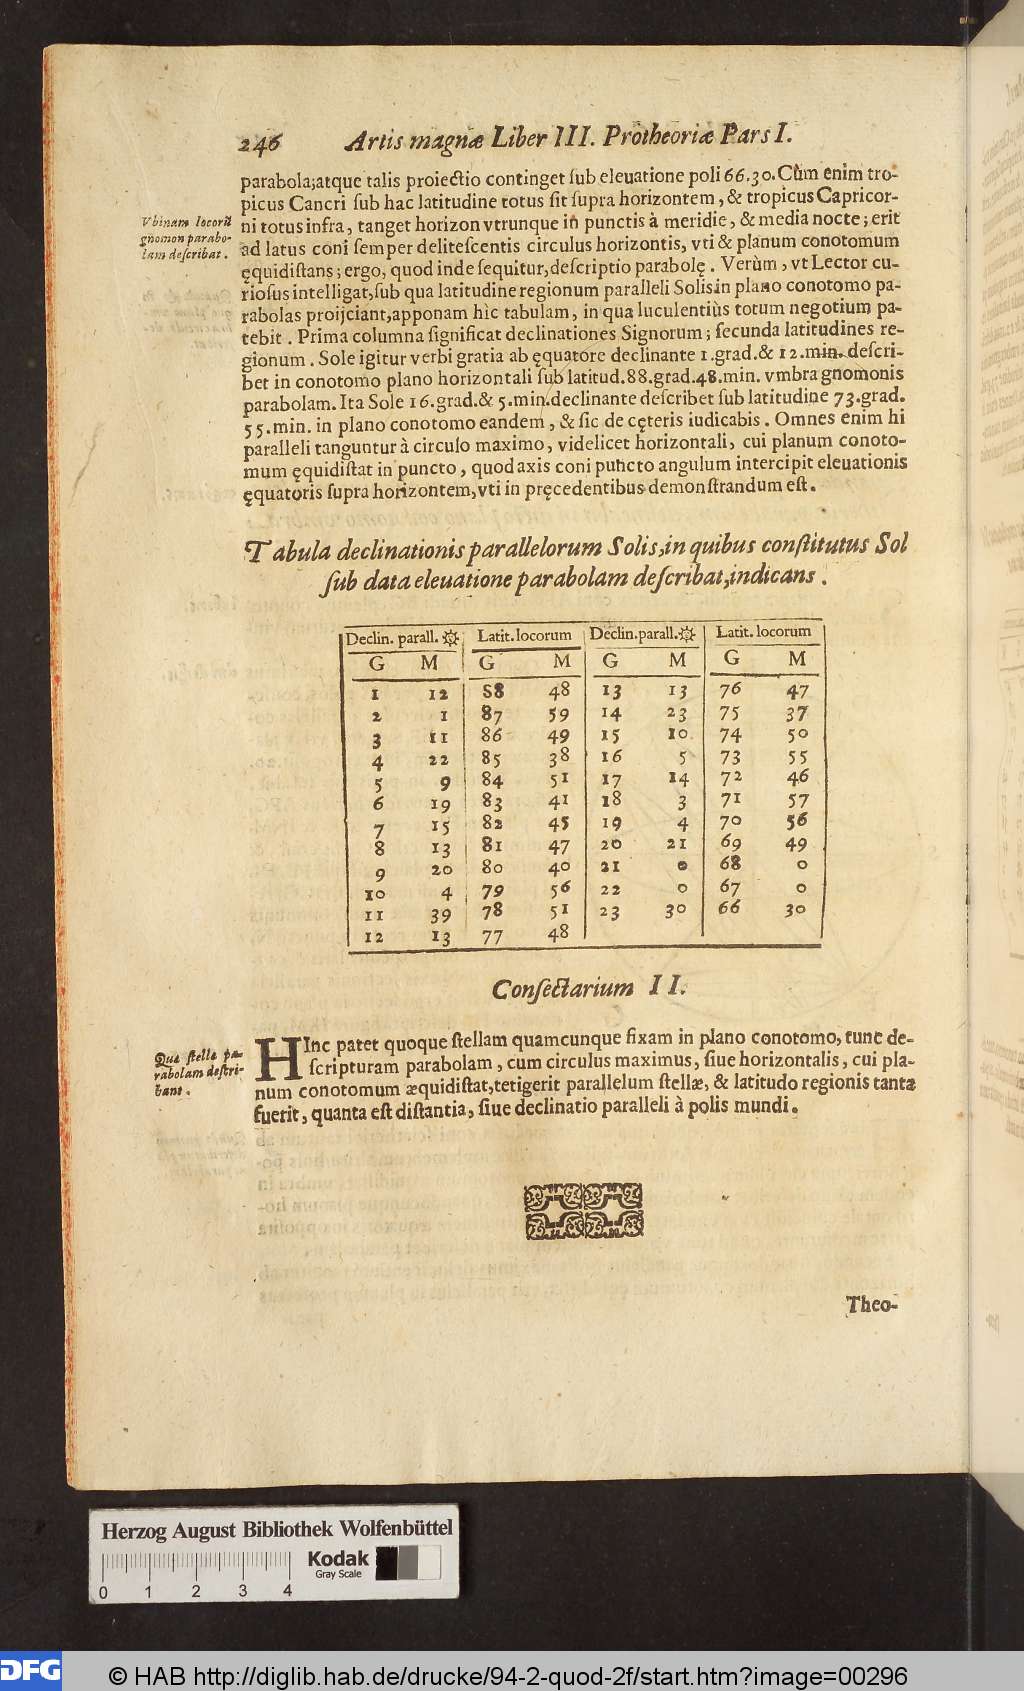 246 Artis magnæ Liber III. Protheoriæ Pars I.
parabola; atque talis proiectio continget ſub eleuatione poli 66.30. Cùm enim tro-
picus Cancri ſub hac latitudine totus ſit ſupra horizontem, & tropicus Capricor-
ni totus infra, tanget horizon vtrunque in punctis à meridie, & media nocte; erit
ad latus coni ſemper deliteſcentis circulus horizontis, vti & planum conotomum
ęquidiſtans; ergo, quod inde ſequitur, deſcriptio parabolę. Verùm, vt Lector cu-
rioſus intelligat, ſub qua latitudine regionum paralleli Solis in plano conotomo pa-
rabolas proijciant, apponam hìc tabulam, in qua luculentiùs totum negotium pa-
tebit. Prima columna ſignificat declinationes Signorum; ſecunda latitudines re-
gionum. Sole igitur verbi gratia ab ęquatore declinante 1. grad. & 12. min. deſcri-
bet in conotomo plano horizontali ſub latitud. 88. grad. 48. min. vmbra gnomonis
parabolam. Ita Sole 16. grad. & 5. min. declinante deſcribet ſub latitudine 73. grad.
55. min. in plano conotomo eandem, & ſic de cęteris iudicabis. Omnes enim hi
paralleli tanguntur à circulo maximo, videlicet horizontali, cui planum conoto-
mum ęquidiſtat in puncto, quod axis coni puncto angulum intercipit eleuationis
ęquatoris ſupra horizontem, vti in pręcedentibus demonſtrandum eſt.
Vbinam locorũ
gnomon parabo-
lam deſcribat.
Tabula declinationis parallelorum Solis, in quibus conſtitutus Sol
ſub data eleuatione parabolam deſcribat, indicans.
Declin. parall. ☼ Latit. locorum Declin. parall. ☼ Latit. locorum
G M G M G M G M
1 12 88 48 13 13 76 47
2 1 87 59 14 23 75 37
3 11 86 49 15 10 74 50
4 22 85 38 16 5 73 55
5 9 84 51 17 14 72 46
6 19 83 41 18 3 71 57
7 15 82 45 19 4 70 56
8 13 81 47 20 21 69 49
9 20 80 40 21 0 68 0
10 4 79 56 22 0 67 0
11 39 78 51 23 30 66 30
12 13 77 48
Conſectarium II.
HInc patet quoque ſtellam quamcunque fixam in plano conotomo, tunc de-
ſcripturam parabolam, cum circulus maximus, ſiue horizontalis, cui pla-
num conotomum æquidiſtat, tetigerit parallelum ſtellæ, & latitudo regionis tanta
fuerit, quanta eſt diſtantia, ſiue declinatio paralleli à polis mundi.
Quæ ſtellæ pa-
rabolam deſcri-
bant.
Theo-
Herzog August Bibliothek Wolfenbüttel
Kodak
Gray Scale
0 1 2 3 4
DFG © HAB http://diglib.hab.de/drucke/94-2-quod-2f/start.htm?image=00296